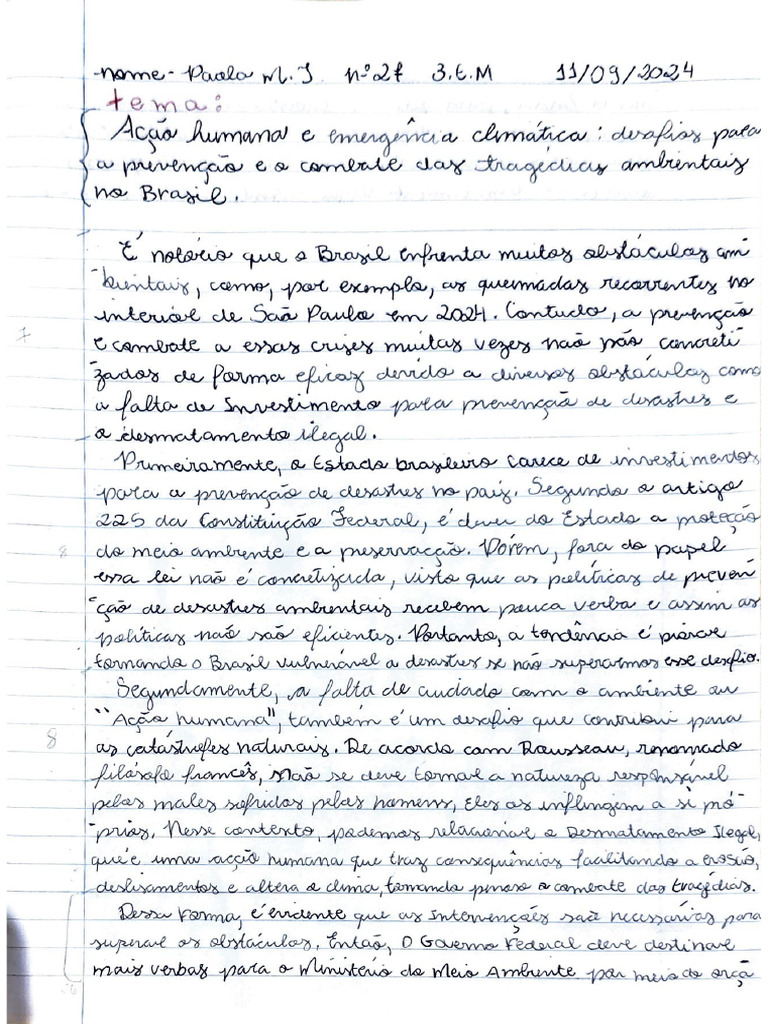 nome - Paola M. J nº 27 3.E.M 11/09/2024
tema:
Ação humana e emergência climática: desafios para
a prevenção e o combate das tragédias ambientais
no Brasil.
É notório que o Brasil enfrenta muitos obstáculos am
bientais, como, por exemplo, as queimadas recorrentes no
interior de São Paulo em 2024. Contudo, a prevenção
7
e combate a essas crises muitas vezes não são concreti
zados de forma eficaz devido a diversos obstáculos como
a falta de Investimento para prevenção de desastres e
o desmatamento ilegal.
Primeiramente, o Estado brasileiro carece de investimentos
para a prevenção de desastres no país. Segundo o artigo
225 da Constituição Federal, é dever do Estado a proteção
8
do meio ambiente e a preservacção. Porém, fora do papel
essa lei não é concretizada, visto que as políticas de preven
ção de desastres ambientais recebem pouca verba e assim as
políticas não são eficientes. Portanto, a tendência é piorar
tornando o Brasil vulnerável a desastres se não superarmos esse desafio.
Segundamente, a falta de cuidado com o ambiente ou
8
"Ação humana", também é um desafio que contribui para
as catástrofes naturais. De acordo com Rousseau, renomado
filósofo francês, Não se deve tornar a natureza responsável
pelos males sofridos pelos homens, Eles os inflingem a si pó
prios. Nesse contexto, podemos relacionar o Desmatamento Ilegal,
que é uma acção humana que traz consequências facilitando a erosão,
deslisamentos e altera o clima, tornando penoso o combate das tragédias.
Dessa Forma, é evidente que as Intervenções são necessárias para
superar os obstáculos. Então, O Governo Federal deve destinar
mais verbas para o Ministério do Meio Ambiente por meio do orçã